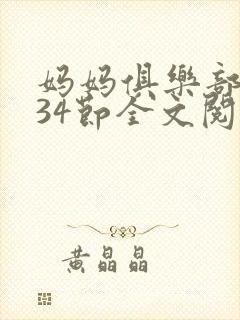 妈妈俱樂部
34節全文閱
黄晶晶